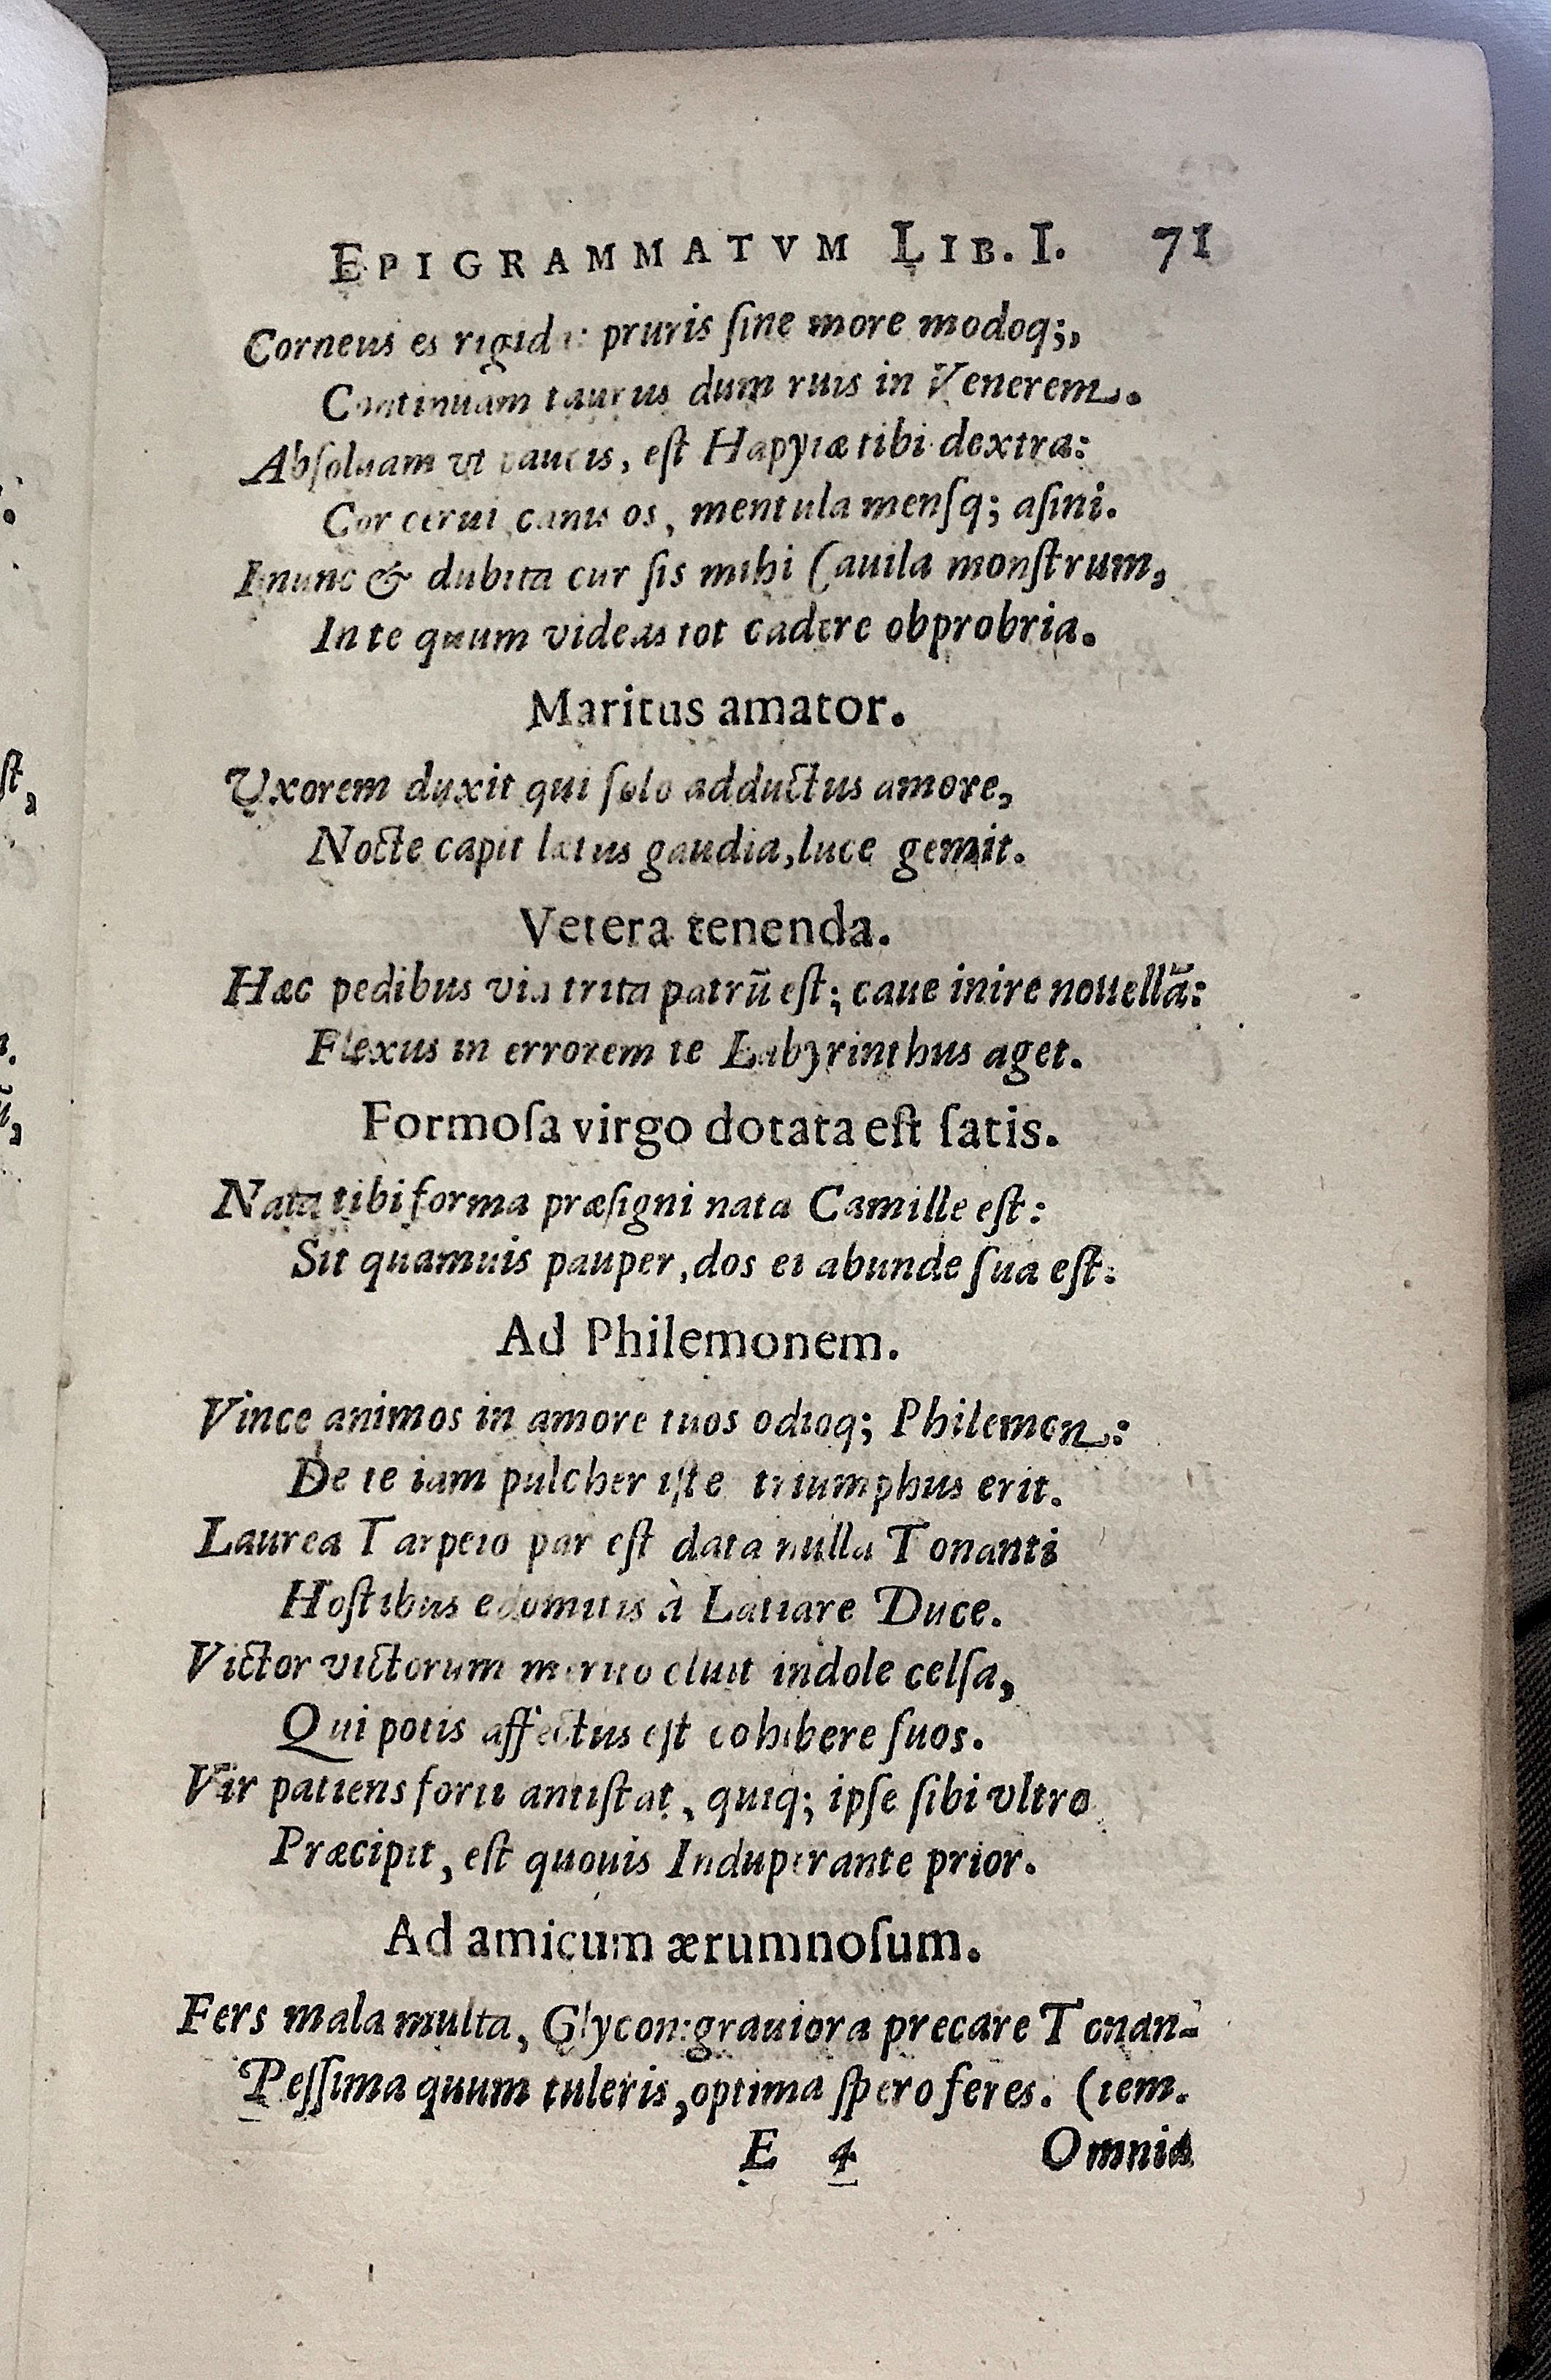 EPIGRAMMATVM LIB. I. 71
Corneus es rigide: pruris ſine more modoq;,
Continuam taurus dum ruis in Venerem.
Abſoluam vt paucis, eſt Hapyiæ tibi dextra:
Cor cerui canis os, mentula menſq; aſini.
I nunc & dubita cur ſis mihi Cauila monſtrum,
In te quum videas tot cadere obprobria.
Maritus amator.
Vxorem duxit qui ſolo adductus amore,
Nocte capit lætus gaudia, luce gemit.
Vetera tenenda.
Hæc pedibus via trita patrũ eſt; caue inire nouellã:
Flexus in errorem te Labyrinthus aget.
Formoſa virgo dotata eſt ſatis.
Nata tibi forma præſigni nata Camille eſt:
Sit quamuis pauper, dos ei abunde ſua eſt.
Ad Philemonem.
Vince animos in amore tuos odioq; Philemon:
De te iam pulcher iſte triumphus erit.
Laurea Tarpeio par eſt data nulla Tonanti
Hoſtibus edomitis à Latiare Duce.
Victor victorum merito cluit indole celſa,
Qui potis affectus eſt cohibere ſuos.
Vir patiens forti antiſtat, quiq; ipſe ſibi vltro
Præcipit, eſt quouis Induperante prior.
Ad amicum ærumnoſum.
Fers mala multa, Glycon: grauiora precare Tonan-
Peſſima quum tuleris, optima ſpero feres. (tem.
E 4 Omnia